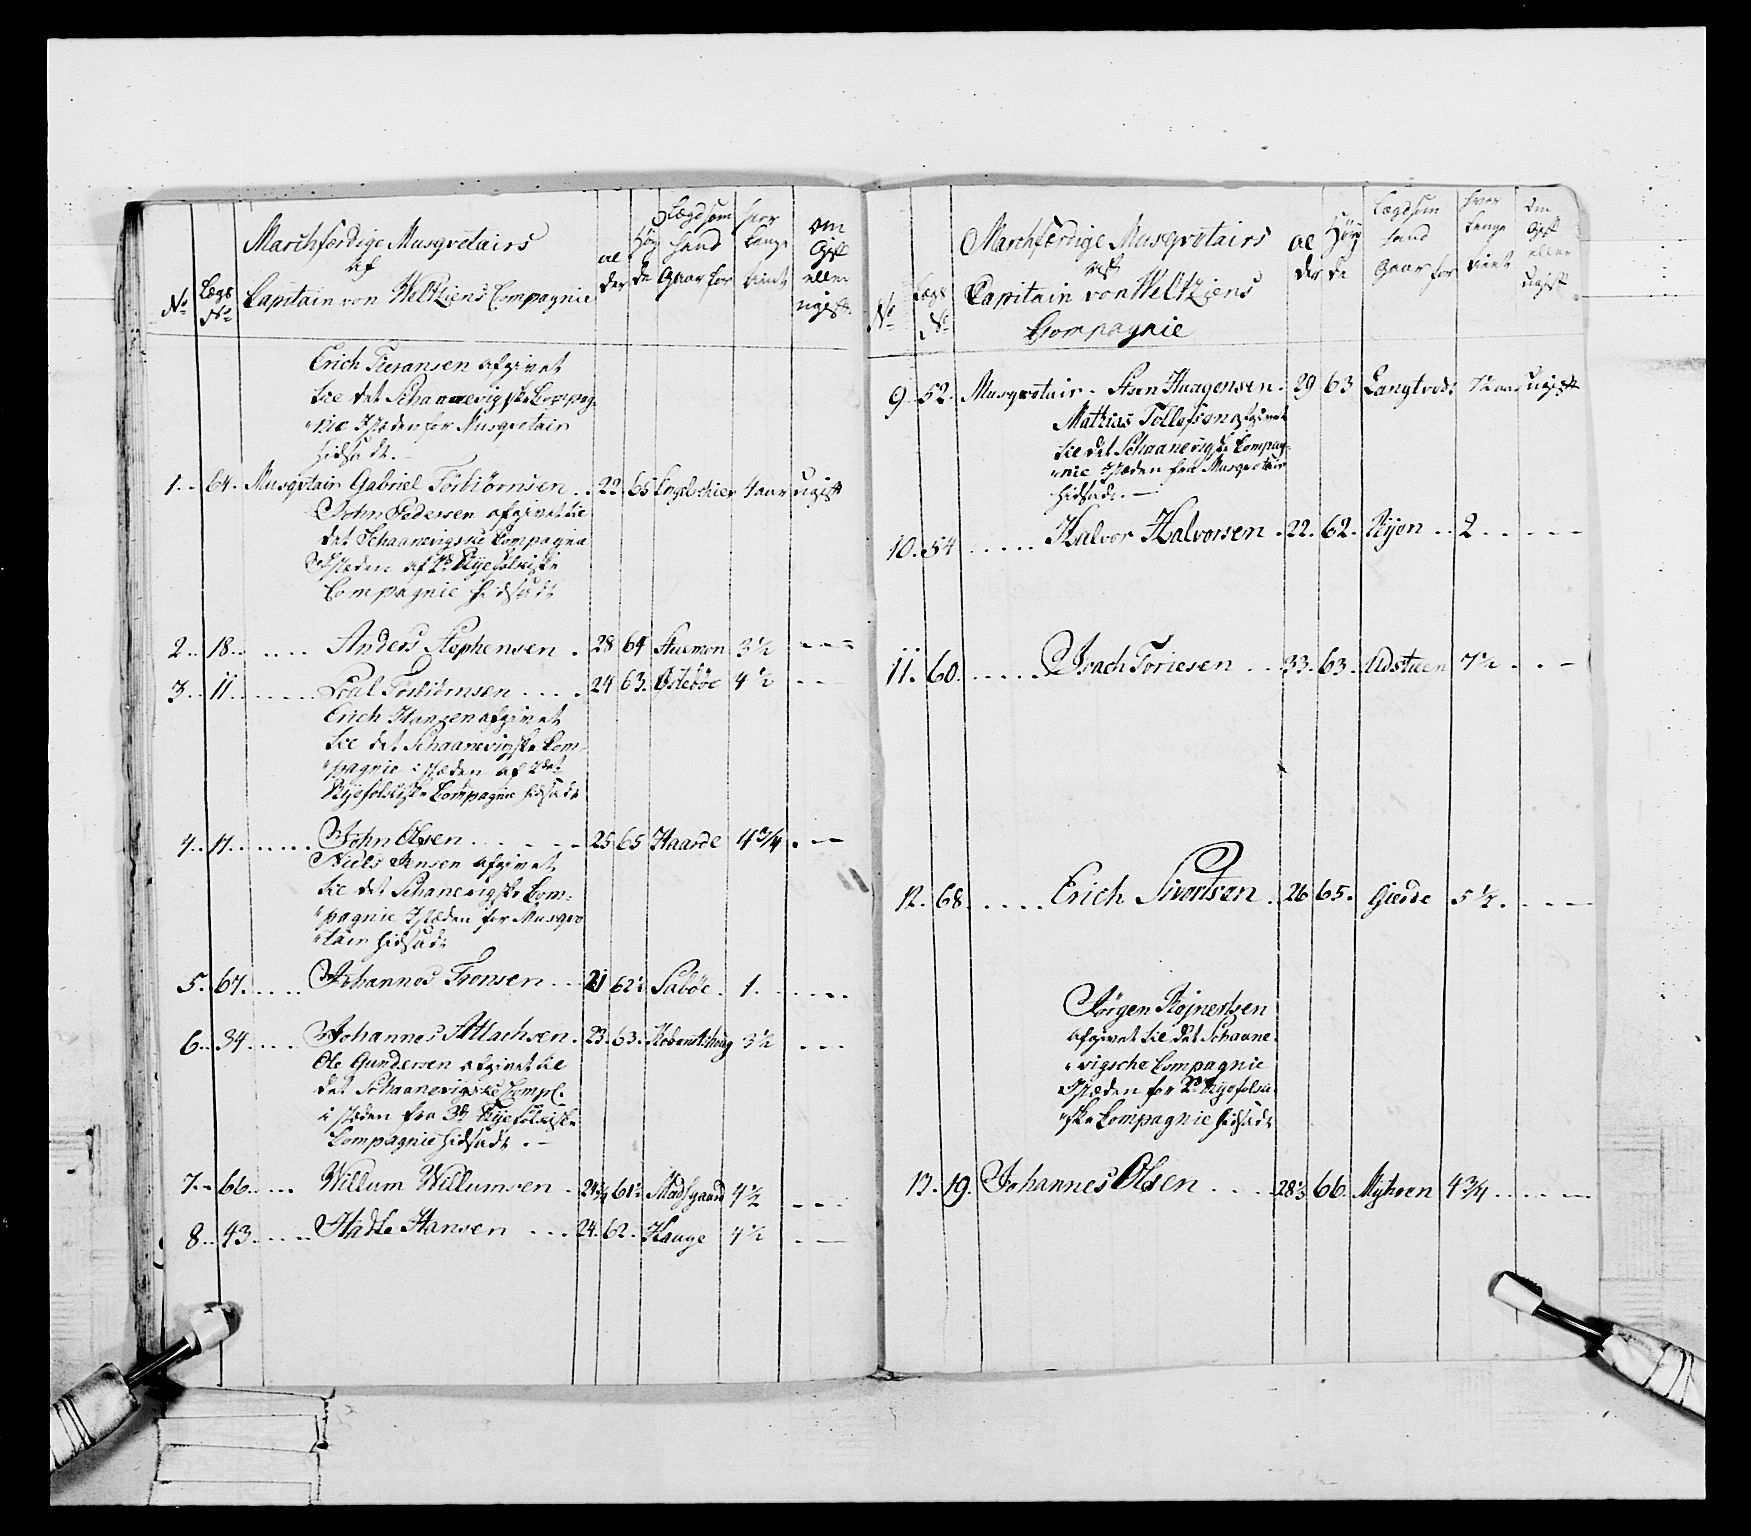 No
Lægs No
Marchferdige Musqvetairs
af
Capitain von Weltziens Compagnie
al der
Høy de
Lægd som hand Gaar for
hvor længe tient
om Gift eller ugift
Erich afgivet
til det Schaanevigske Compag-
nie Istæden for Musqvetair
hidsadt.
1. 64. Musqvetair Gabriel Torbiørnsen 22 65 4 aar ugift
John Pedersen afgivet til
det Schaanevigske Compagnie
Istæden af 2de Ryefølkiske
Compagnie hidsadt
2. 18. Anders Stephensen 28 64 3½
3. 11. Poul Torbiørnsen 24 63. Østebøe 4½
Erich Hansen afgivet
til det Schaanevigske Com-
pagnie i stæden af 2det
Ryefølkiske Compagnie hidsadt
4. 17. John Olsen 25 65 Haarde 4¾
Niels Jensen afgivet
til det Schanevigske Com-
pagnie Istæden for Musqve
tair hidsadt
5. 67. Johannes Tronsen 21 62½ Sabøe. 1.
6. 34. Johannes 23. 63. 3½
Ole Gundersen afgivet til
det Schaanevigske Comp:
i stæden fra 3de Ryefølkiske
Compagnie hidsadt.
7. 66. Willum Willumsen 24½ 61½ Madsgaard 4½
8. 43. Hansen 24. 62. Hauge 4½
No
Lægs No
Marchferdige Musqvetairs
Capitain von Weltziens
Compagnie
al der
Høy de
Lægd som hand Gaar for
hvor længe tient
Om Gift eller ugift
9. 52. Musqvetair. Sten Haagensen. 29 63 aar ugift
Mathias Tollefsen afgivet
til det Schaanevigske Compag-
nie Istæden fra Musqvetair
hidsadt.
10. 54 Halvor Halvorsen 22. 62. Ryen 2
11. 60. Toriesen 33. 63. 7½
12. 68. Erich Sivertsen 26 65. Gierde 5½
Jørgen Rejnertsen
afgivet til det Schaane-
vigsche Compagnie
Istæden for 2de Ryefølki-
ske Compagnie hidsadt
13. 19. Johannes Olsen 28½ 66. Myhren 4¾